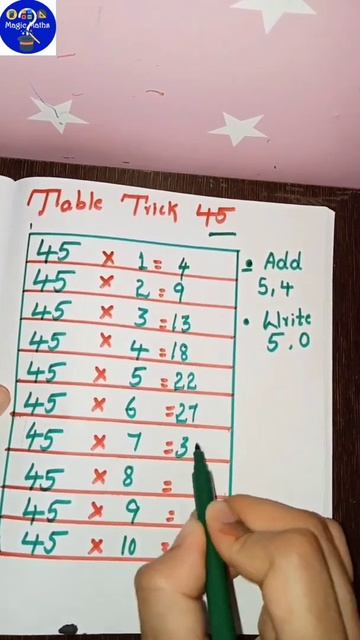 Magic Maths
Table Trick 45
45 × 1 = 4
45 × 2 = 9
45 × 3 = 13
45 × 4 = 18
45 × 5 = 22
45 × 6 = 27
45 × 7 = 3
45 × 8 =
45 × 9 =
45 × 10 =
• Add
5, 4
• Write
5, 0